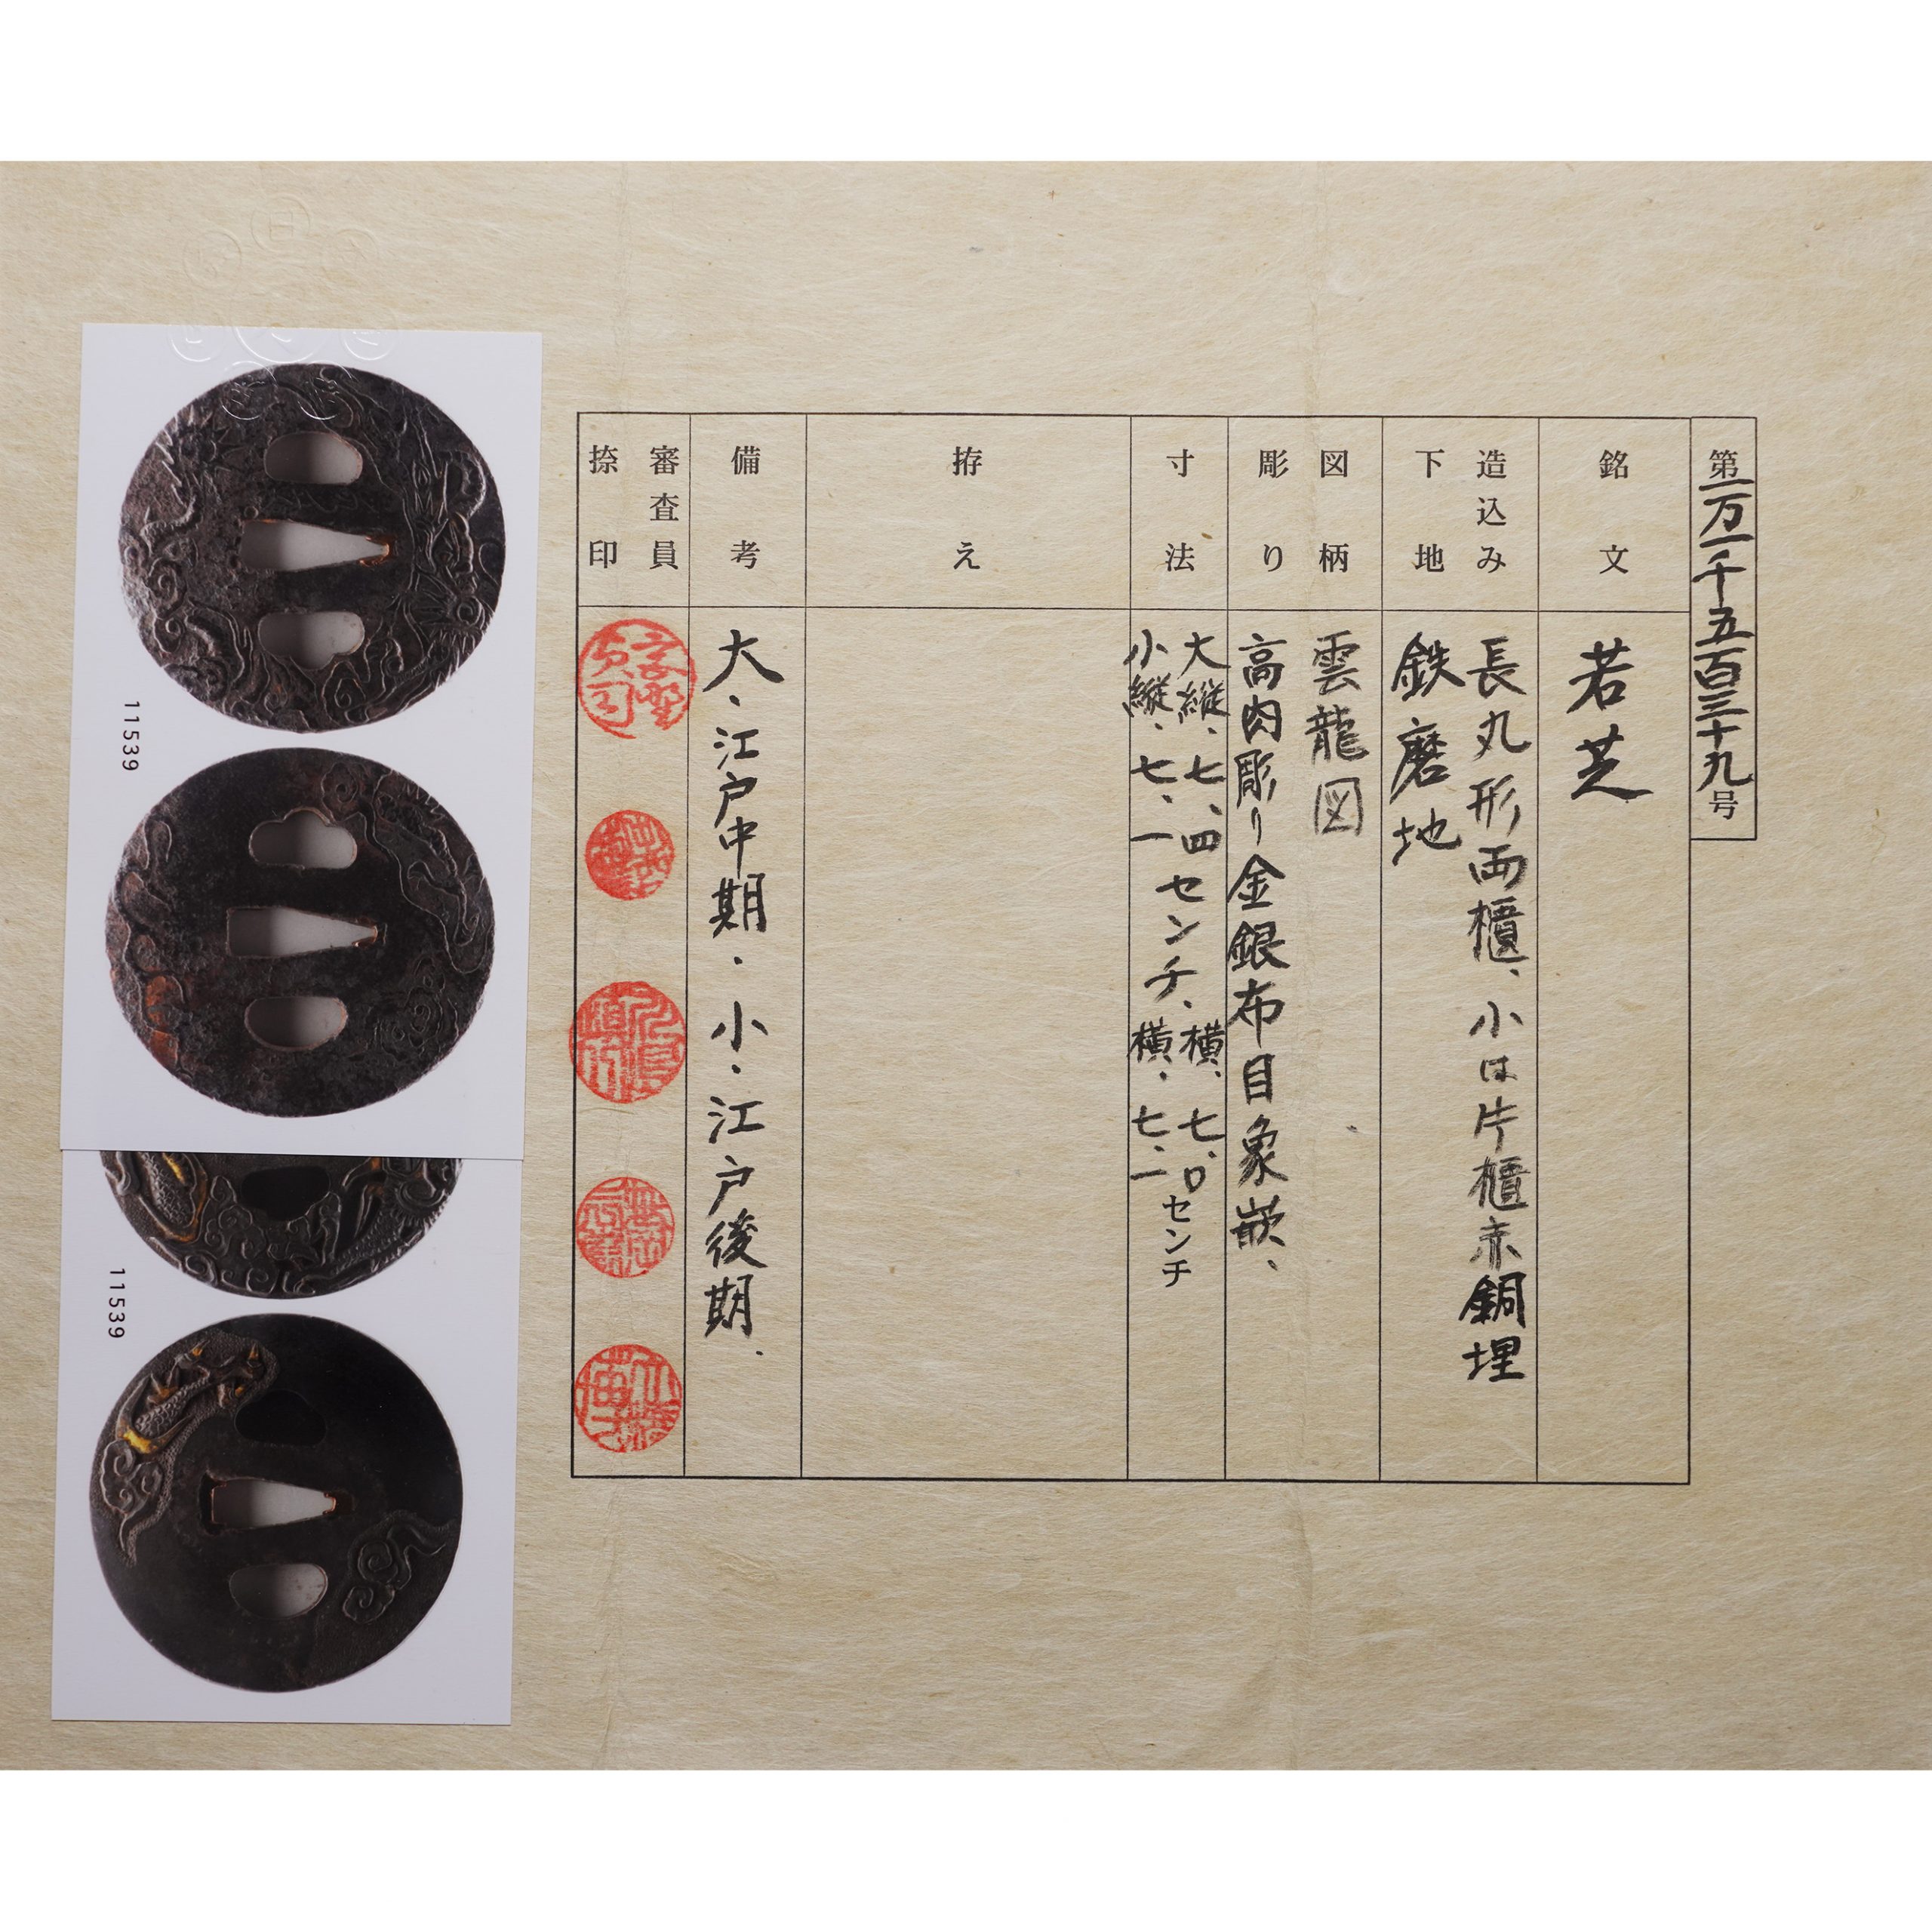 第一万一千五百三十九号
銘文
若芝
造込み
下地
長丸形両櫃、小は片櫃赤銅埋
鉄磨地
図柄
彫り
雲龍図
高肉彫り金銀布目象嵌、
寸法
大縦、七、四センチ、横、七、〇センチ
小縦、七、一センチ、横、七、一センチ
拵え
備考
大・江戸中期・小・江戸後期.
審査員
捺印
11539
11539